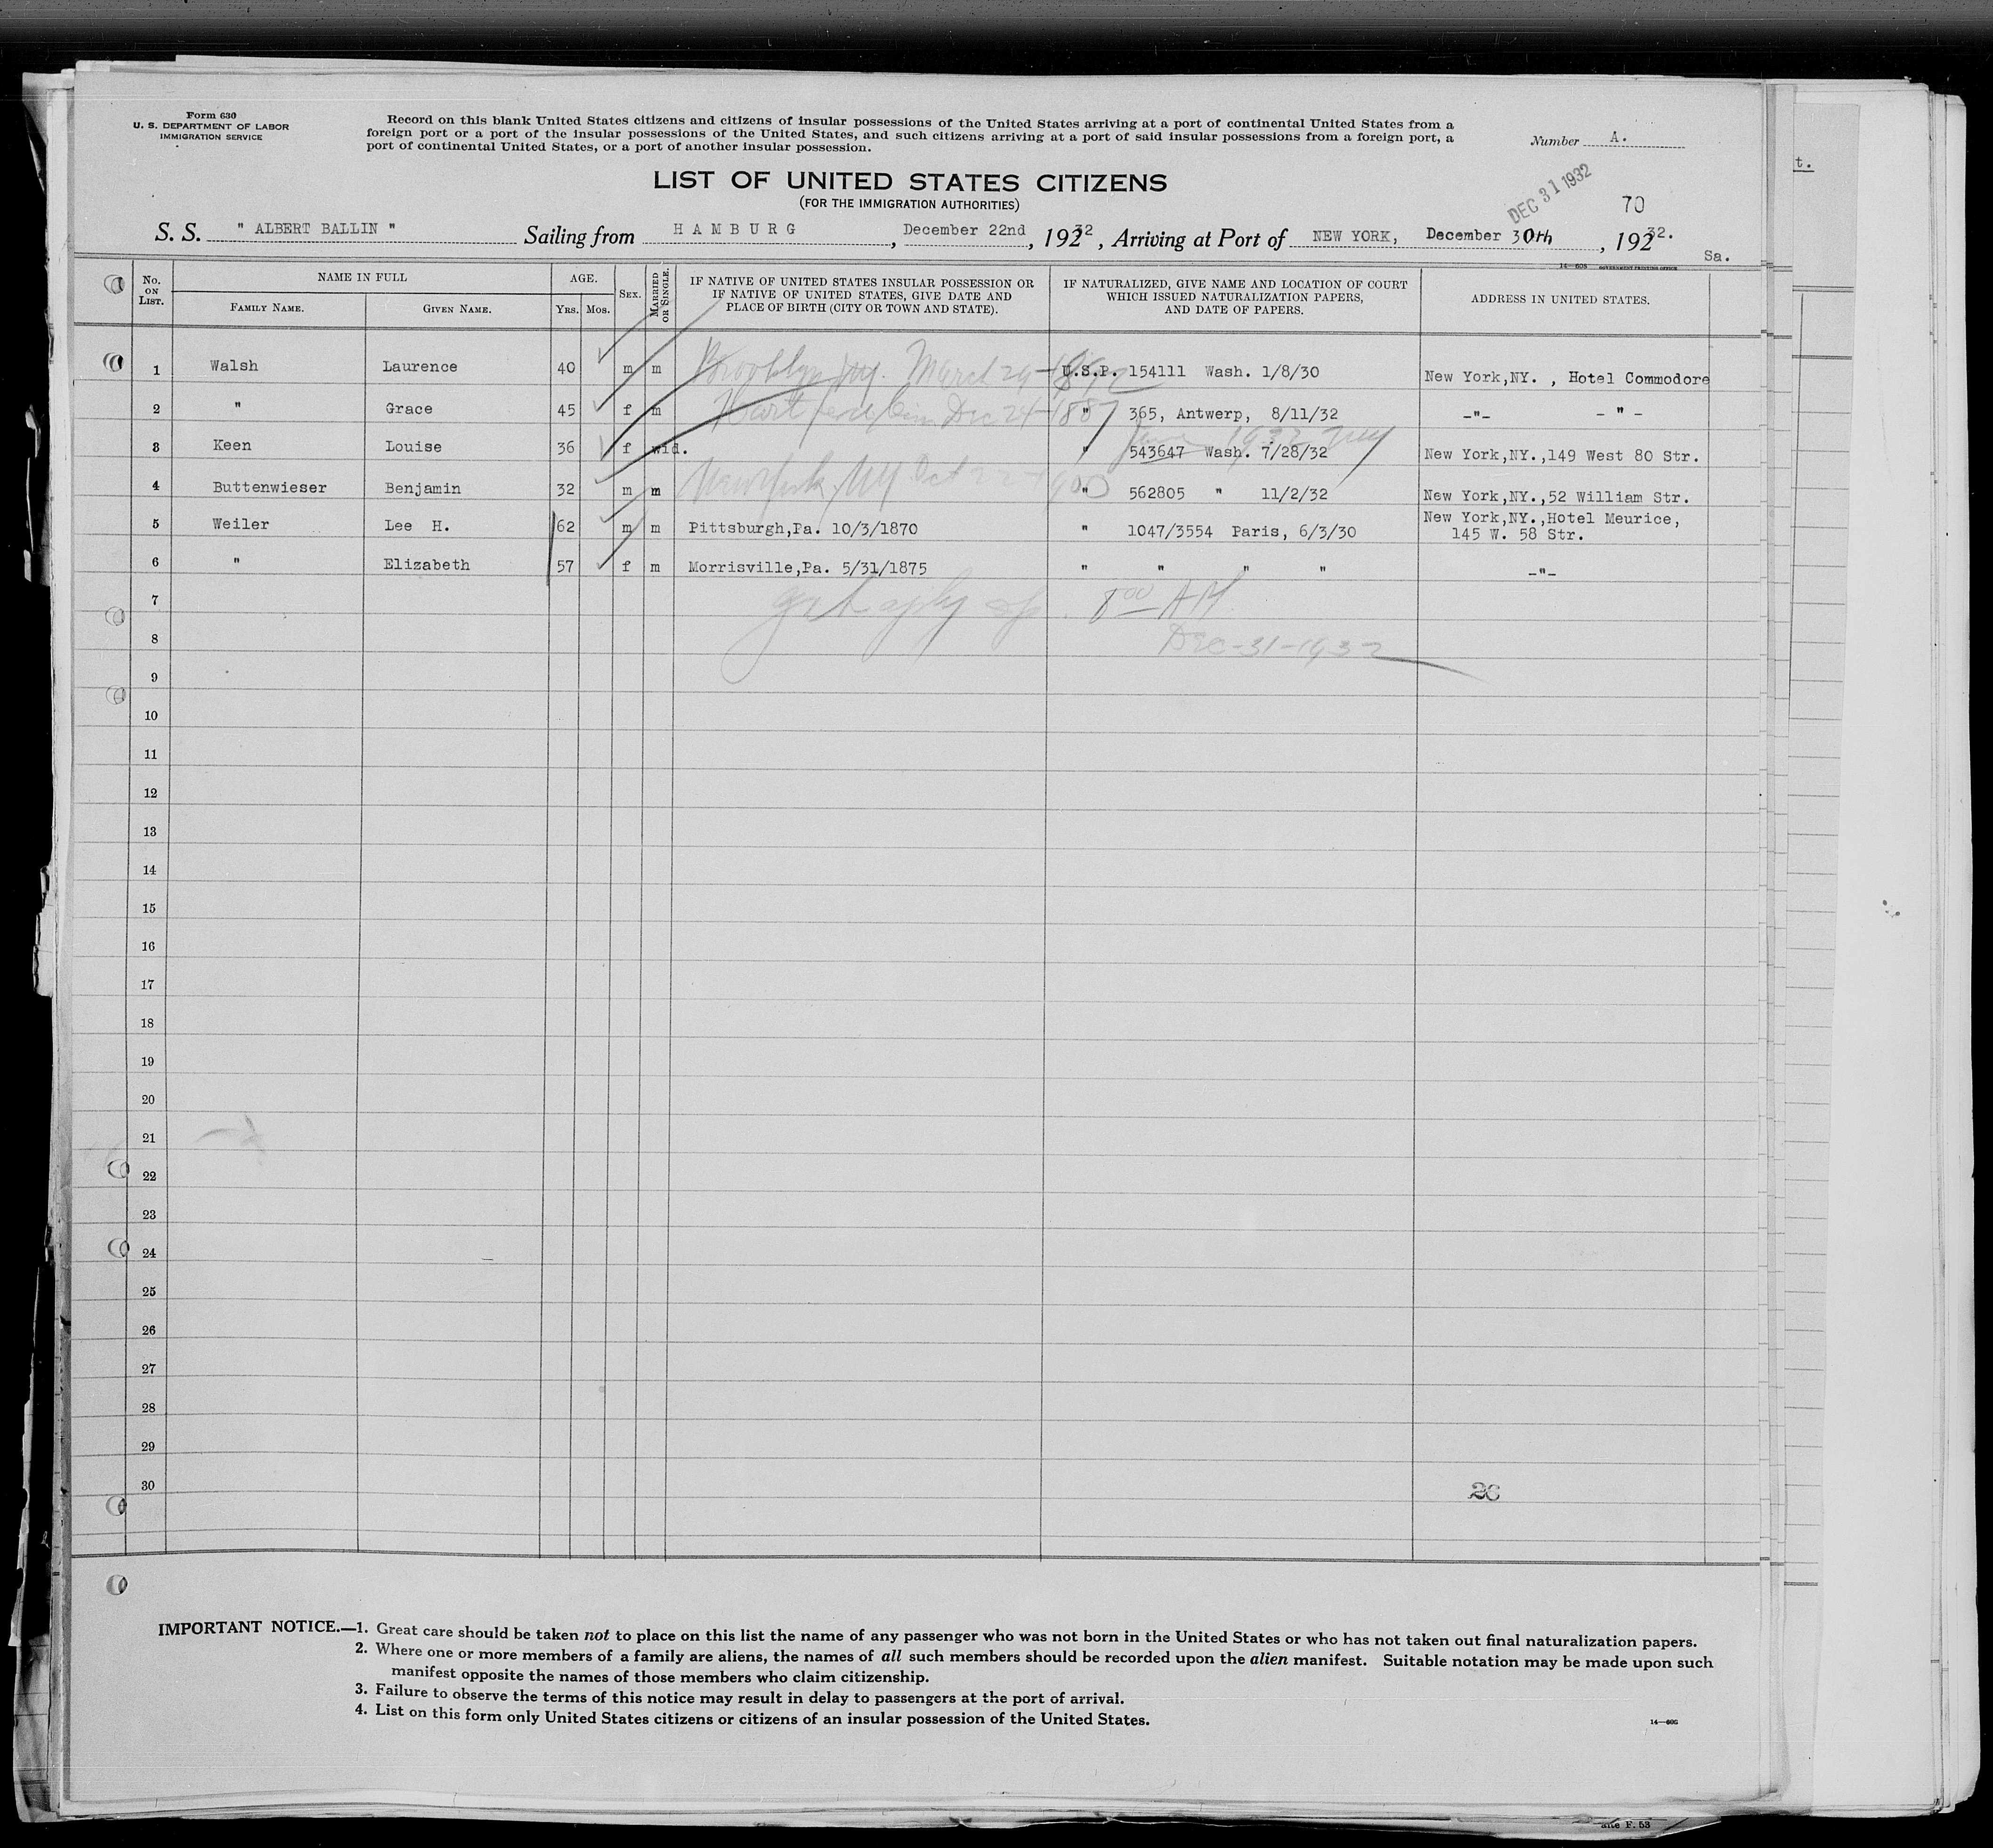 Form 630
U. S. DEPARTMENT OF LABOR
IMMIGRATION SERVICE
Record on this blank United States citizens and citizens of insular possessions of the United States arriving at a port of continental United States from a
foreign port or a port of the insular possessions of the United States, and such citizens arriving at a port of said insular possessions from a foreign port, a
port of continental United States, or a port of another insular possession.
Number A.
t.
LIST OF UNITED STATES CITIZENS
(FOR THE IMMIGRATION AUTHORITIES)
DEC 31 1932
70
S. S. " ALBERT BALLIN " Sailing from HAMBURG, December 22nd, 19232, Arriving at Port of NEW YORK, December 30th, 19232.
Sa.
14—605 GOVERNMENT PRINTING OFFICE
No. ON LIST.
NAME IN FULL
FAMILY NAME.
GIVEN NAME.
AGE.
YRS. MOS.
SEX.
MARRIED OR SINGLE.
IF NATIVE OF UNITED STATES INSULAR POSSESSION OR
IF NATIVE OF UNITED STATES, GIVE DATE AND
PLACE OF BIRTH (CITY OR TOWN AND STATE).
IF NATURALIZED, GIVE NAME AND LOCATION OF COURT
WHICH ISSUED NATURALIZATION PAPERS,
AND DATE OF PAPERS.
ADDRESS IN UNITED STATES.
1 Walsh Laurence 40 m m Brooklyn NY. March 29-1892 U.S.P. 154111 Wash. 1/8/30 New York,NY. , Hotel Commodore
2 " Grace 45 f m Hartford Conn Dec 24-1887 " 365, Antwerp, 8/11/32 -"- - " -
3 Keen Louise 36 f wid. " 543647 Wash. 7/28/32 New York,NY.,149 West 80 Str.
4 Buttenwieser Benjamin 32 m m New York, NY Oct 22-1900 " 562805 " 11/2/32 New York,NY.,52 William Str.
5 Weiler Lee H. 62 m m Pittsburgh,Pa. 10/3/1870 " 1047/3554 Paris, 6/3/30 New York,NY.,Hotel Meurice,
145 W. 58 Str.
6 " Elizabeth 57 f m Morrisville,Pa. 5/31/1875 " " " " -"-
7 8 00 AM
8 DEC-31-1932
9
10
11
12
13
14
15
16
17
18
19
20
21
22
23
24
25
26
27
28
29
30
IMPORTANT NOTICE.—1. Great care should be taken not to place on this list the name of any passenger who was not born in the United States or who has not taken out final naturalization papers.
2. Where one or more members of a family are aliens, the names of all such members should be recorded upon the alien manifest. Suitable notation may be made upon such
manifest opposite the names of those members who claim citizenship.
3. Failure to observe the terms of this notice may result in delay to passengers at the port of arrival.
4. List on this form only United States citizens or citizens of an insular possession of the United States.
14—605
F. 53